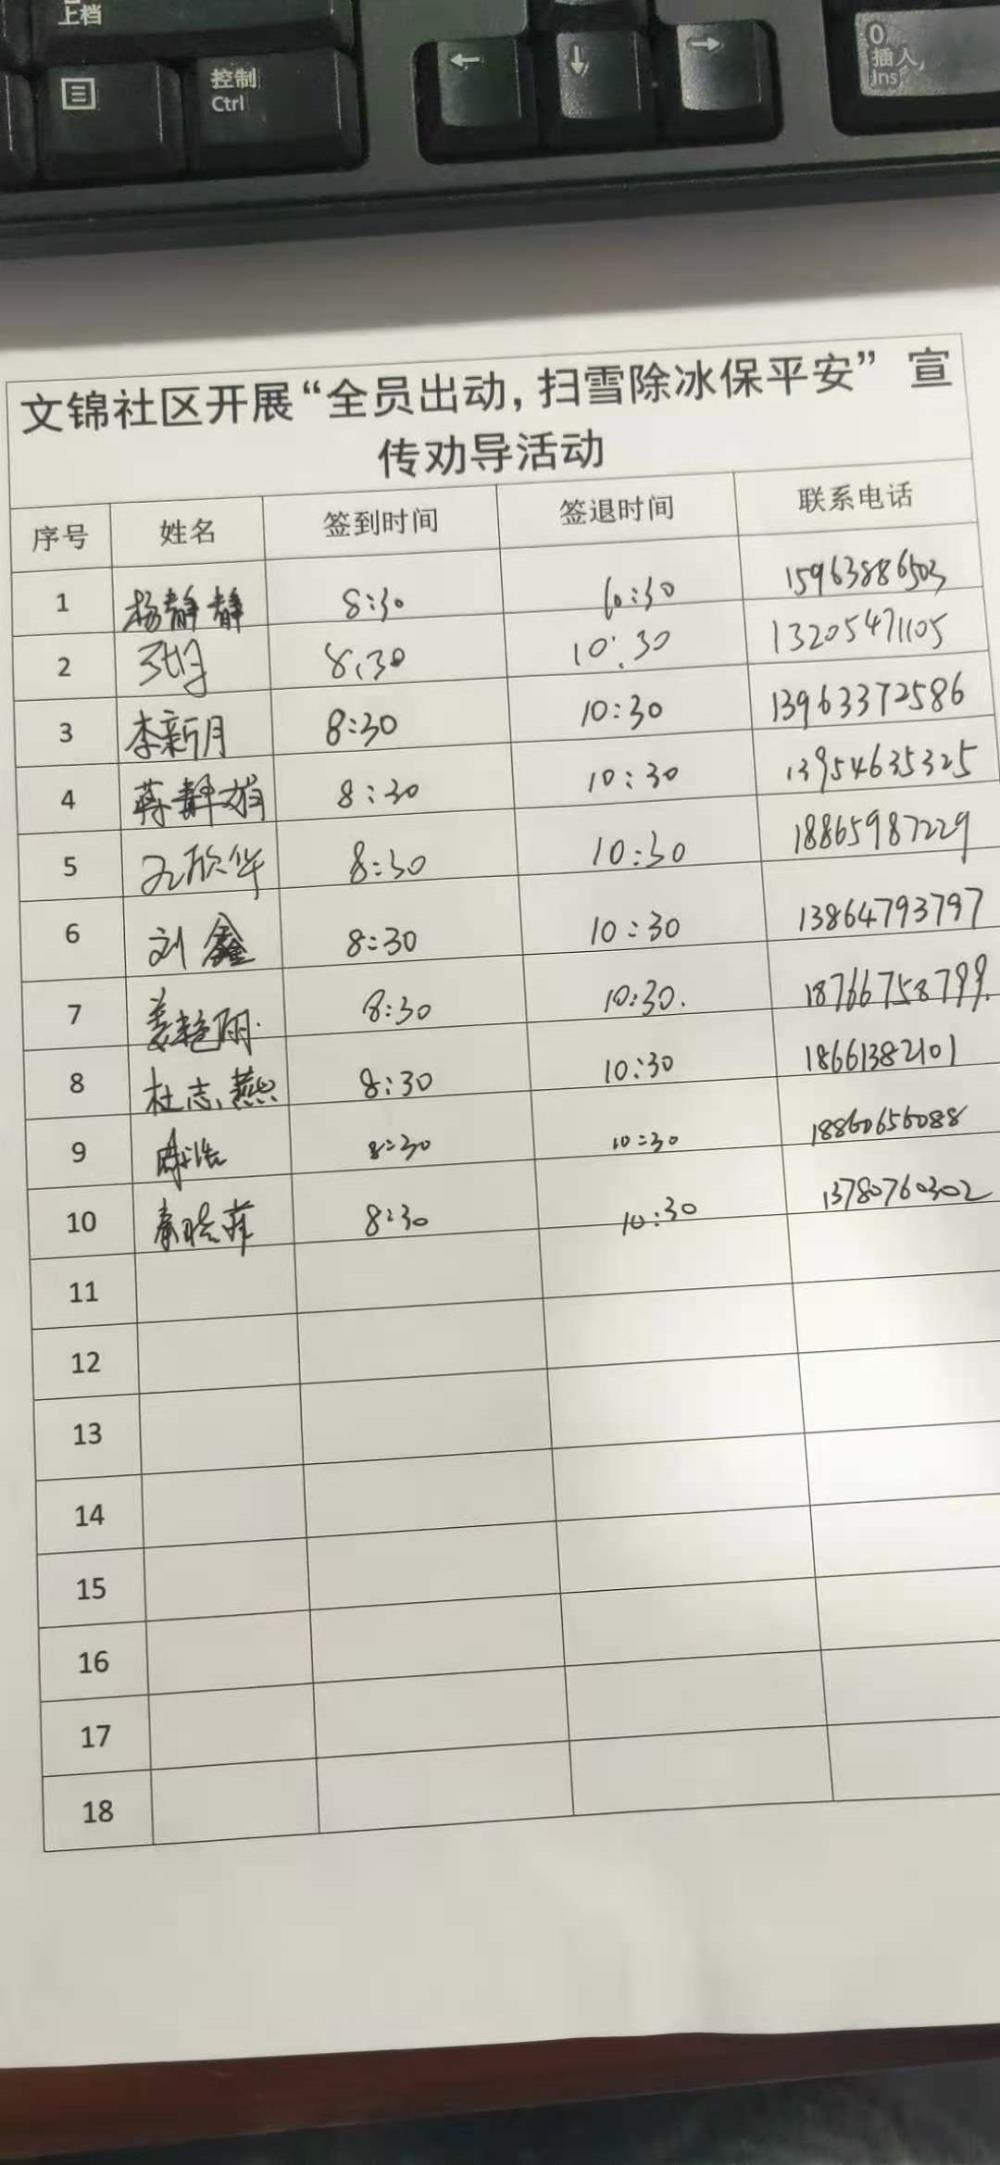 上档
控制
Ctrl
←
↓
→
0
插入
Ins
文锦社区开展“全员出动，扫雪除冰保平安” 宣
传劝导活动
序号 姓名 签到时间 签退时间 联系电话
1 杨静静 8:30 10:30 15963886503
2 8:30 10:30 13205471105
3 李新月 8:30 10:30 13963372586
4 8:30 10:30 13954635325
5 孔欣华 8:30 10:30 18865987229
6 刘鑫 8:30 10:30 13864793797
7 姜艳丽 8:30 10:30. 18766758799.
8 杜志燕 8:30 10:30 18661382101
9 8:30 10:30 18860656088
10 秦晓菲 8:30 10:30 13780760302
11
12
13
14
15
16
17
18